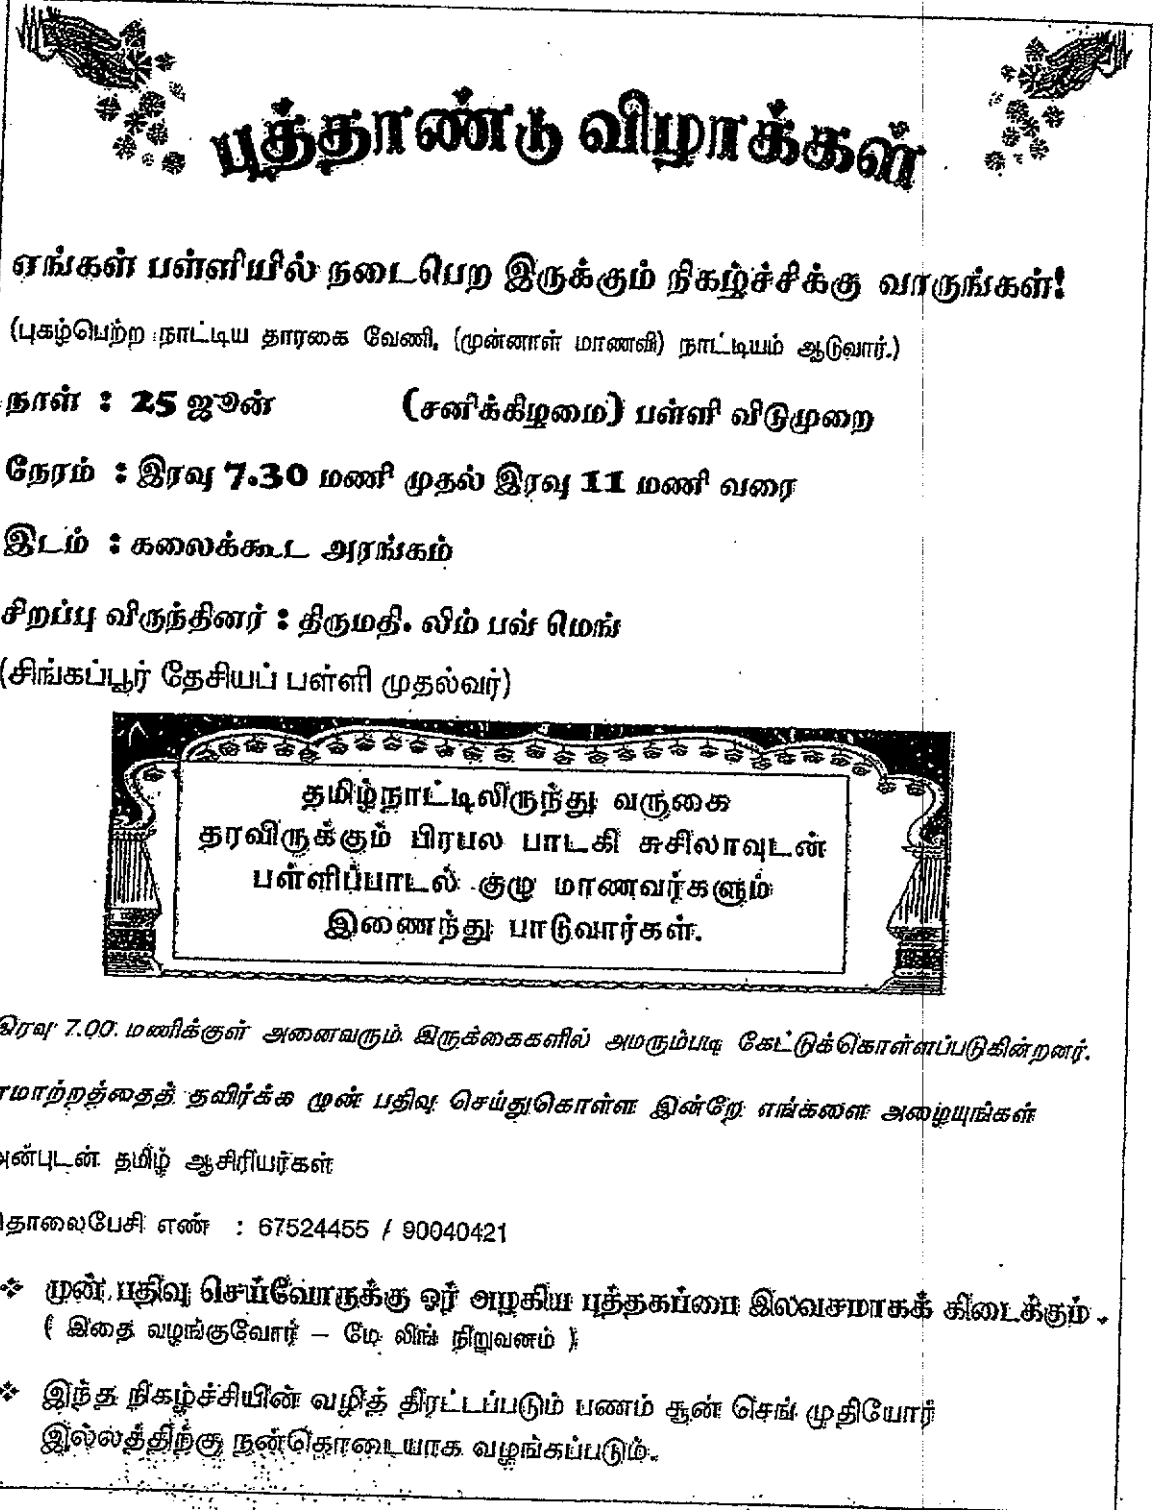 புத்தாண்டு விழாக்கள்
எங்கள் பள்ளியில் நடைபெற இருக்கும் நிகழ்ச்சிக்கு வாருங்கள்!
(புகழ்பெற்ற நாட்டிய தாரகை வேணி, (முன்னாள் மாணவி) நாட்டியம் ஆடுவார்.)
நாள் : 25 ஜூன் (சனிக்கிழமை) பள்ளி விடுமுறை
நேரம் : இரவு 7.30 மணி முதல் இரவு 11 மணி வரை
இடம் : கலைக்கூட அரங்கம்
சிறப்பு விருந்தினர் : திருமதி. லிம் பவ் மெங்
(சிங்கப்பூர் தேசியப் பள்ளி முதல்வர்)
தமிழ்நாட்டிலிருந்து வருகை
தரவிருக்கும் பிரபல பாடகி சுசிலாவுடன்
பள்ளிப்பாடல் குழு மாணவர்களும்
இணைந்து பாடுவார்கள்.
இரவு 7.00 மணிக்குள் அனைவரும் இருக்கைகளில் அமரும்படி கேட்டுக்கொள்ளப்படுகின்றனர்.
ஏமாற்றத்தைத் தவிர்க்க முன் பதிவு செய்துகொள்ள இன்றே எங்களை அழையுங்கள்
அன்புடன் தமிழ் ஆசிரியர்கள்
தொலைபேசி எண் : 67524455 / 90040421
❖ முன் பதிவு செய்வோருக்கு ஓர் அழகிய புத்தகப்பை இலவசமாகக் கிடைக்கும் .
( இதை வழங்குவோர் – மே லிங் நிறுவனம் )
❖ இந்த நிகழ்ச்சியின் வழித் திரட்டப்படும் பணம் சூன் செங் முதியோர்
இல்லத்திற்கு நன்கொடையாக வழங்கப்படும்.